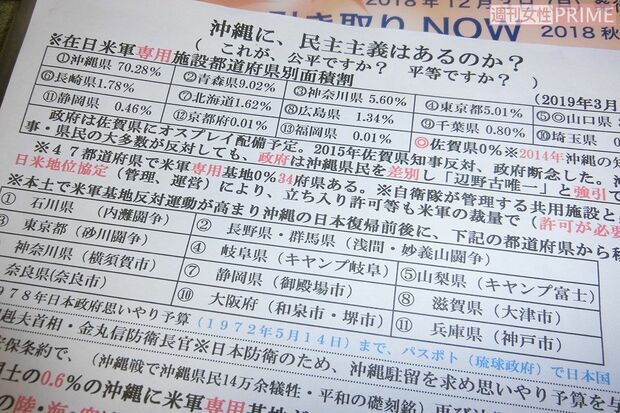 2018年12月
週刊女性PRIME
引き取り NOW 2018 秋
沖縄に、民主主義はあるのか？
（ これが、公平ですか？ 平等ですか？ ）
※在日米軍専用施設都道府県別面積割 (2019年3月
①沖縄県 70.28% ②青森県9.02% ③神奈川県 5.60% ④東京都5.01% ⑤◎山口県
⑥長崎県1.78% ⑦北海道1.62% ⑧広島県 1.34% ⑨千葉県0.80% ⑩埼玉県 0
⑪静岡県 0.46% ⑫京都府0.01% ⑬福岡県 0.01% ◎佐賀県0%※2014年沖縄の知
政府は佐賀県にオスプレイ配備予定。2015年佐賀県知事反対、政府断念した。沖
事・県民の大多数が反対しても、政府は沖縄県民を差別し「辺野古唯一」と強引
※４７都道府県で米軍専用基地0% 34府県ある。※自衛隊が管理する共用施設と
日米地位協定（管理、運営）により、立ち入り許可等も米軍の裁量で（許可が必要
※本土で米軍基地反対運動が高まり沖縄の日本復帰前後に、下記の都道府県から移
① 石川県 （内灘闘争） ② 長野県・群馬県（浅間・妙義山闘争）
③ 東京都（砂川闘争） ④ 岐阜県（キャンプ岐阜） ⑤山梨県（キャンプ富士）
神奈川県（横須賀市） ⑦ 静岡県（御殿場市） ⑧ 滋賀県（大津市）
奈良県(奈良市) ⑩ 大阪府（和泉市・堺市） ⑪ 兵庫県（神戸市）
978年日本政府思いやり予算（１９７２年５月１４日）まで、パスポト（琉球政府）で日本国
超夫首相・金丸信防衛長官※日本防衛のため、沖縄駐留を求め思いやり予算を与
保条約で、（沖縄戦で沖縄県民14万余犠牲・平和の礎刻銘）
土の0.6%の沖縄に米軍専用基地
陸・海・空